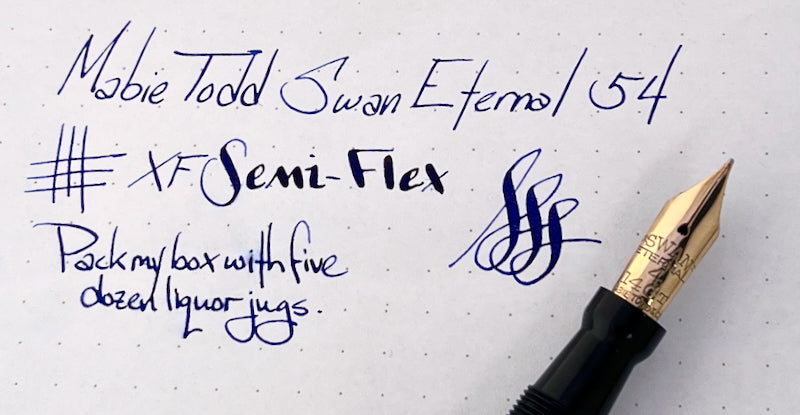 Mabie Todd Swan Eternal 54
XF Semi-Flex
Pack my box with five
dozen liquor jugs.
SWAN
ETERNAL
4
14CT